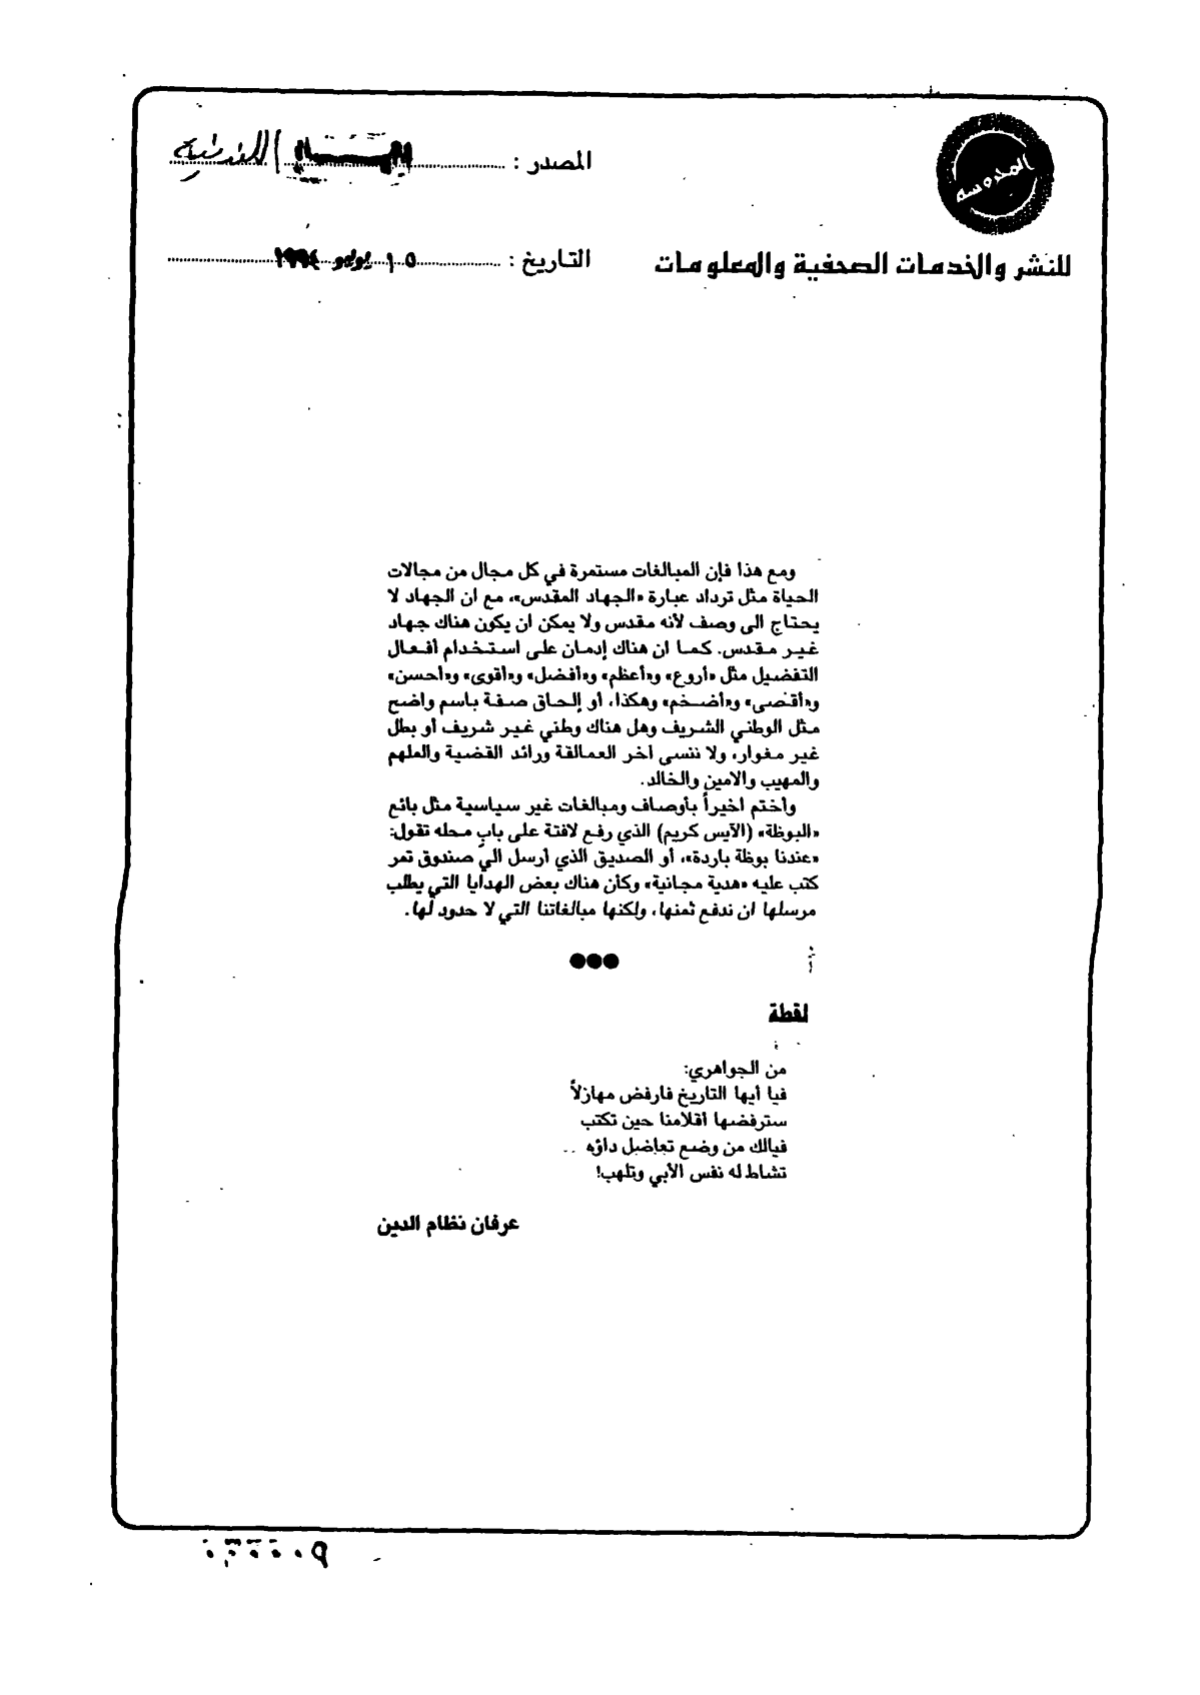 المحروسة
المصدر : اللندنية
للنشر والخدمات الصحفية والمعلومات
التاريخ : ١٥ يوليو ١٩٩٤
ومع هذا فإن المبالغات مستمرة في كل مجال من مجالات
الحياة مثل ترداد عبارة «الجهاد المقدس»، مع ان الجهاد لا
يحتاج الى وصف لأنه مقدس ولا يمكن ان يكون هناك جهاد
غير مقدس. كما ان هناك إدمان على استخدام أفعال
التفضيل مثل «أروع» و«أعظم» و«أفضل» و«أقوى» و«أحسن»
و«أقصى» و«أضخم» وهكذا، أو إلحاق صفة باسم واضح
مثل الوطني الشريف وهل هناك وطني غير شريف أو بطل
غير مغوار، ولا ننسى آخر العمالقة ورائد القضية والملهم
والمهيب والامين والخالد.
وأختم اخيراً بأوصاف ومبالغات غير سياسية مثل بائع
«البوظة» (الآيس كريم) الذي رفع لافتة على باب محله تقول:
«عندنا بوظة باردة»، أو الصديق الذي أرسل الي صندوق تمر
كتب عليه «هدية مجانية» وكأن هناك بعض الهدايا التي يطلب
مرسلها ان ندفع ثمنها، ولكنها مبالغاتنا التي لا حدود لها.
●●●
لقطة
من الجواهري:
فيا أيها التاريخ فارفض مهازلاً
سترفضها أقلامنا حين تكتب
فيالك من وضع تعاضل داؤه ..
تشاط له نفس الأبي وتلهب!
عرفان نظام الدين